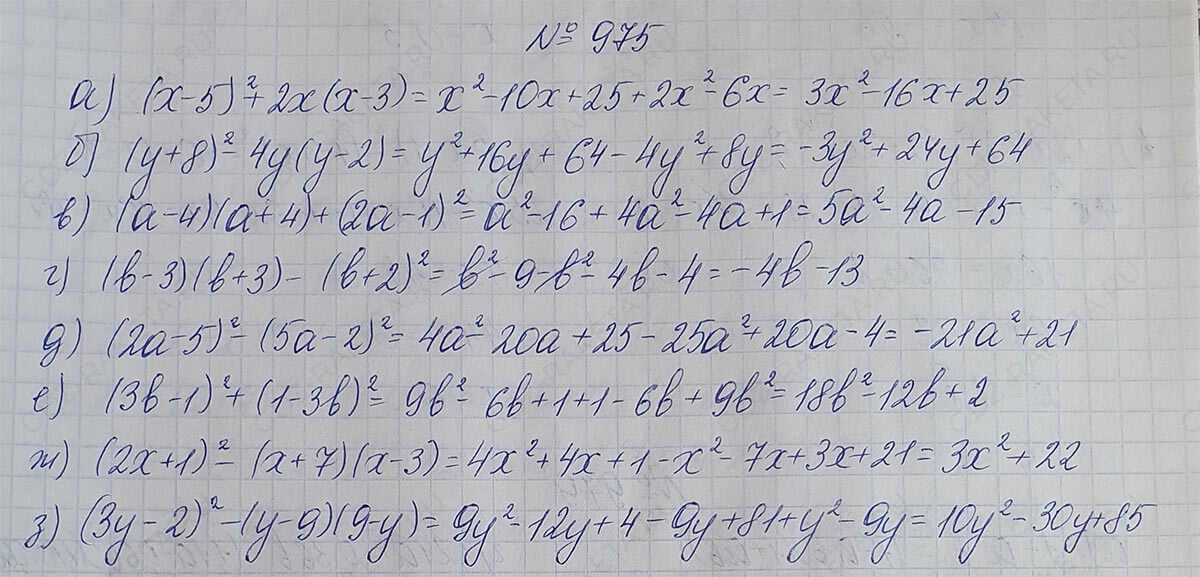 № 975
а) (x-5)²+2x(x-3)=x²-10x+25+2x²-6x=3x²-16x+25
б) (y+8)²-4y(y-2)=y²+16y+64-4y²+8y=-3y²+24y+64
в) (a-4)(a+4)+(2a-1)²=a²-16+4a²-4a+1=5a²-4a-15
г) (b-3)(b+3)-(b+2)²=b²-9-b²-4b-4=-4b-13
д) (2a-5)²-(5a-2)²=4a²-20a+25-25a²+20a-4=-21a²+21
е) (3b-1)²+(1-3b)²=9b²-6b+1+1-6b+9b²=18b²-12b+2
ж) (2x+1)²-(x+7)(x-3)=4x²+4x+1-x²-7x+3x+21=3x²+22
з) (3y-2)²-(y-9)(9-y)=9y²-12y+4-9y+81+y²-9y=10y²-30y+85